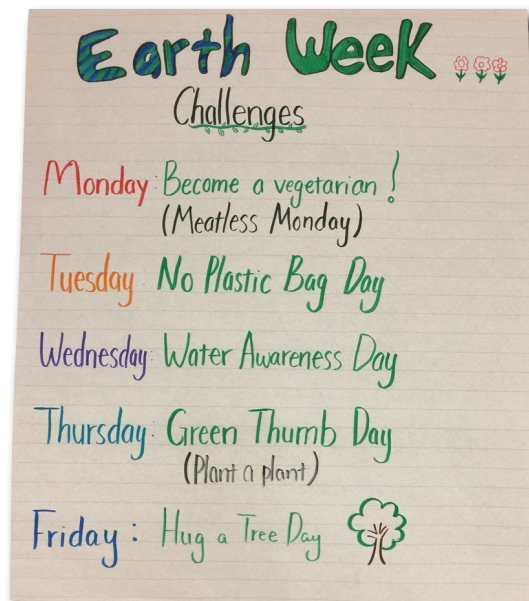 Earth Week
Challenges
Monday: Become a vegetarian!
(Meatless Monday)
Tuesday No Plastic Bag Day
Wednesday: Water Awareness Day
Thursday: Green Thumb Day
(Plant a plant)
Friday: Hug a Tree Day